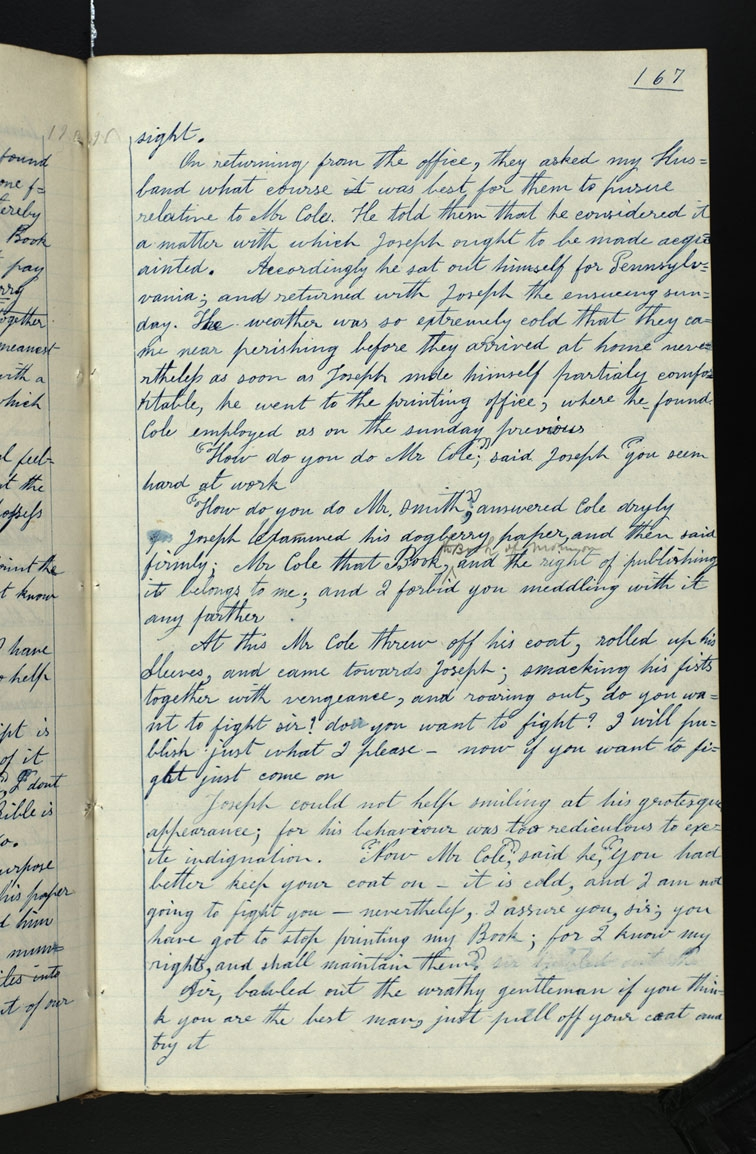 167
sight.
On returning from the office, they asked my Hus=
band what course it was best for them to pursue
relative to Mr Cole. He told them that he considered it
a matter with which Joseph ought to be made acqu=
ainted. Accordingly he sat out himself for Pennsylv=
vania; and returned with Joseph the ensueing sun=
day. The weather was so extremely cold that they ca=
me near perishing before they arrived at home neve=
rtheless as soon as Joseph mde himself partialy comfo=
rtable, he went to the printing office; where he found
Cole employed as on the sunday previous
"How do you do Mr Cole", said Joseph "you seem
hard at work
"How do you do Mr. Smith", answered Cole dryly
Joseph examined his dogberry paper, and then said
the Book of Mormon
firmly; Mr Cole that Book, and the right of publishing
it belongs to me; and I forbid you meddling with it
any farther
At this Mr Cole threw off his coat, rolled up his
sleeves, and came towards Joseph; smacking his fists
together with vengeance, and roaring out, do you wa=
nt to fight sir? do you want to fight? I will pu=
blish just what I please — now if you want to fi=
ght just come on
Joseph could not help smiling at his grotesque
appearance; for his behaviour was too rediculous to exc=
ite indignation. "Now Mr Cole", said he, "you had
better keep your coat on — it is cold, and I am not
going to fight you — nevertheless, I assure you, sir; you
have got to stop printing my Book; for I know my
rights, and shall maintain them", sir bawled out the
Sir, bawled out the wrathy gentleman if you thin=
k you are the best man, just pull off your coat and
try it
found
ereby
Book
pay
together
meanest
with a
which
feel=
t the
rint the
t know
I have
o help
ipt is
of it
I dont
Bible is
urpose
his paper
d him
num=
iles into
t of our